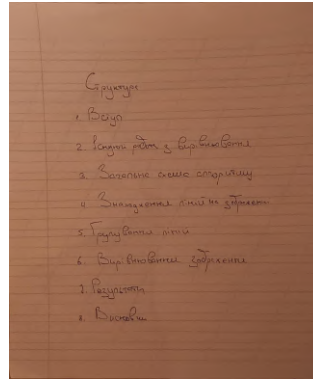 Структура
1. Вступ
2. Існуючі роботи з вирівнювання
3. Загальна схема алгоритму
4. Знаходження ліній на зображенні
5. Групування ліній
6. Вирівнювання зображення
7. Результати
8. Висновки